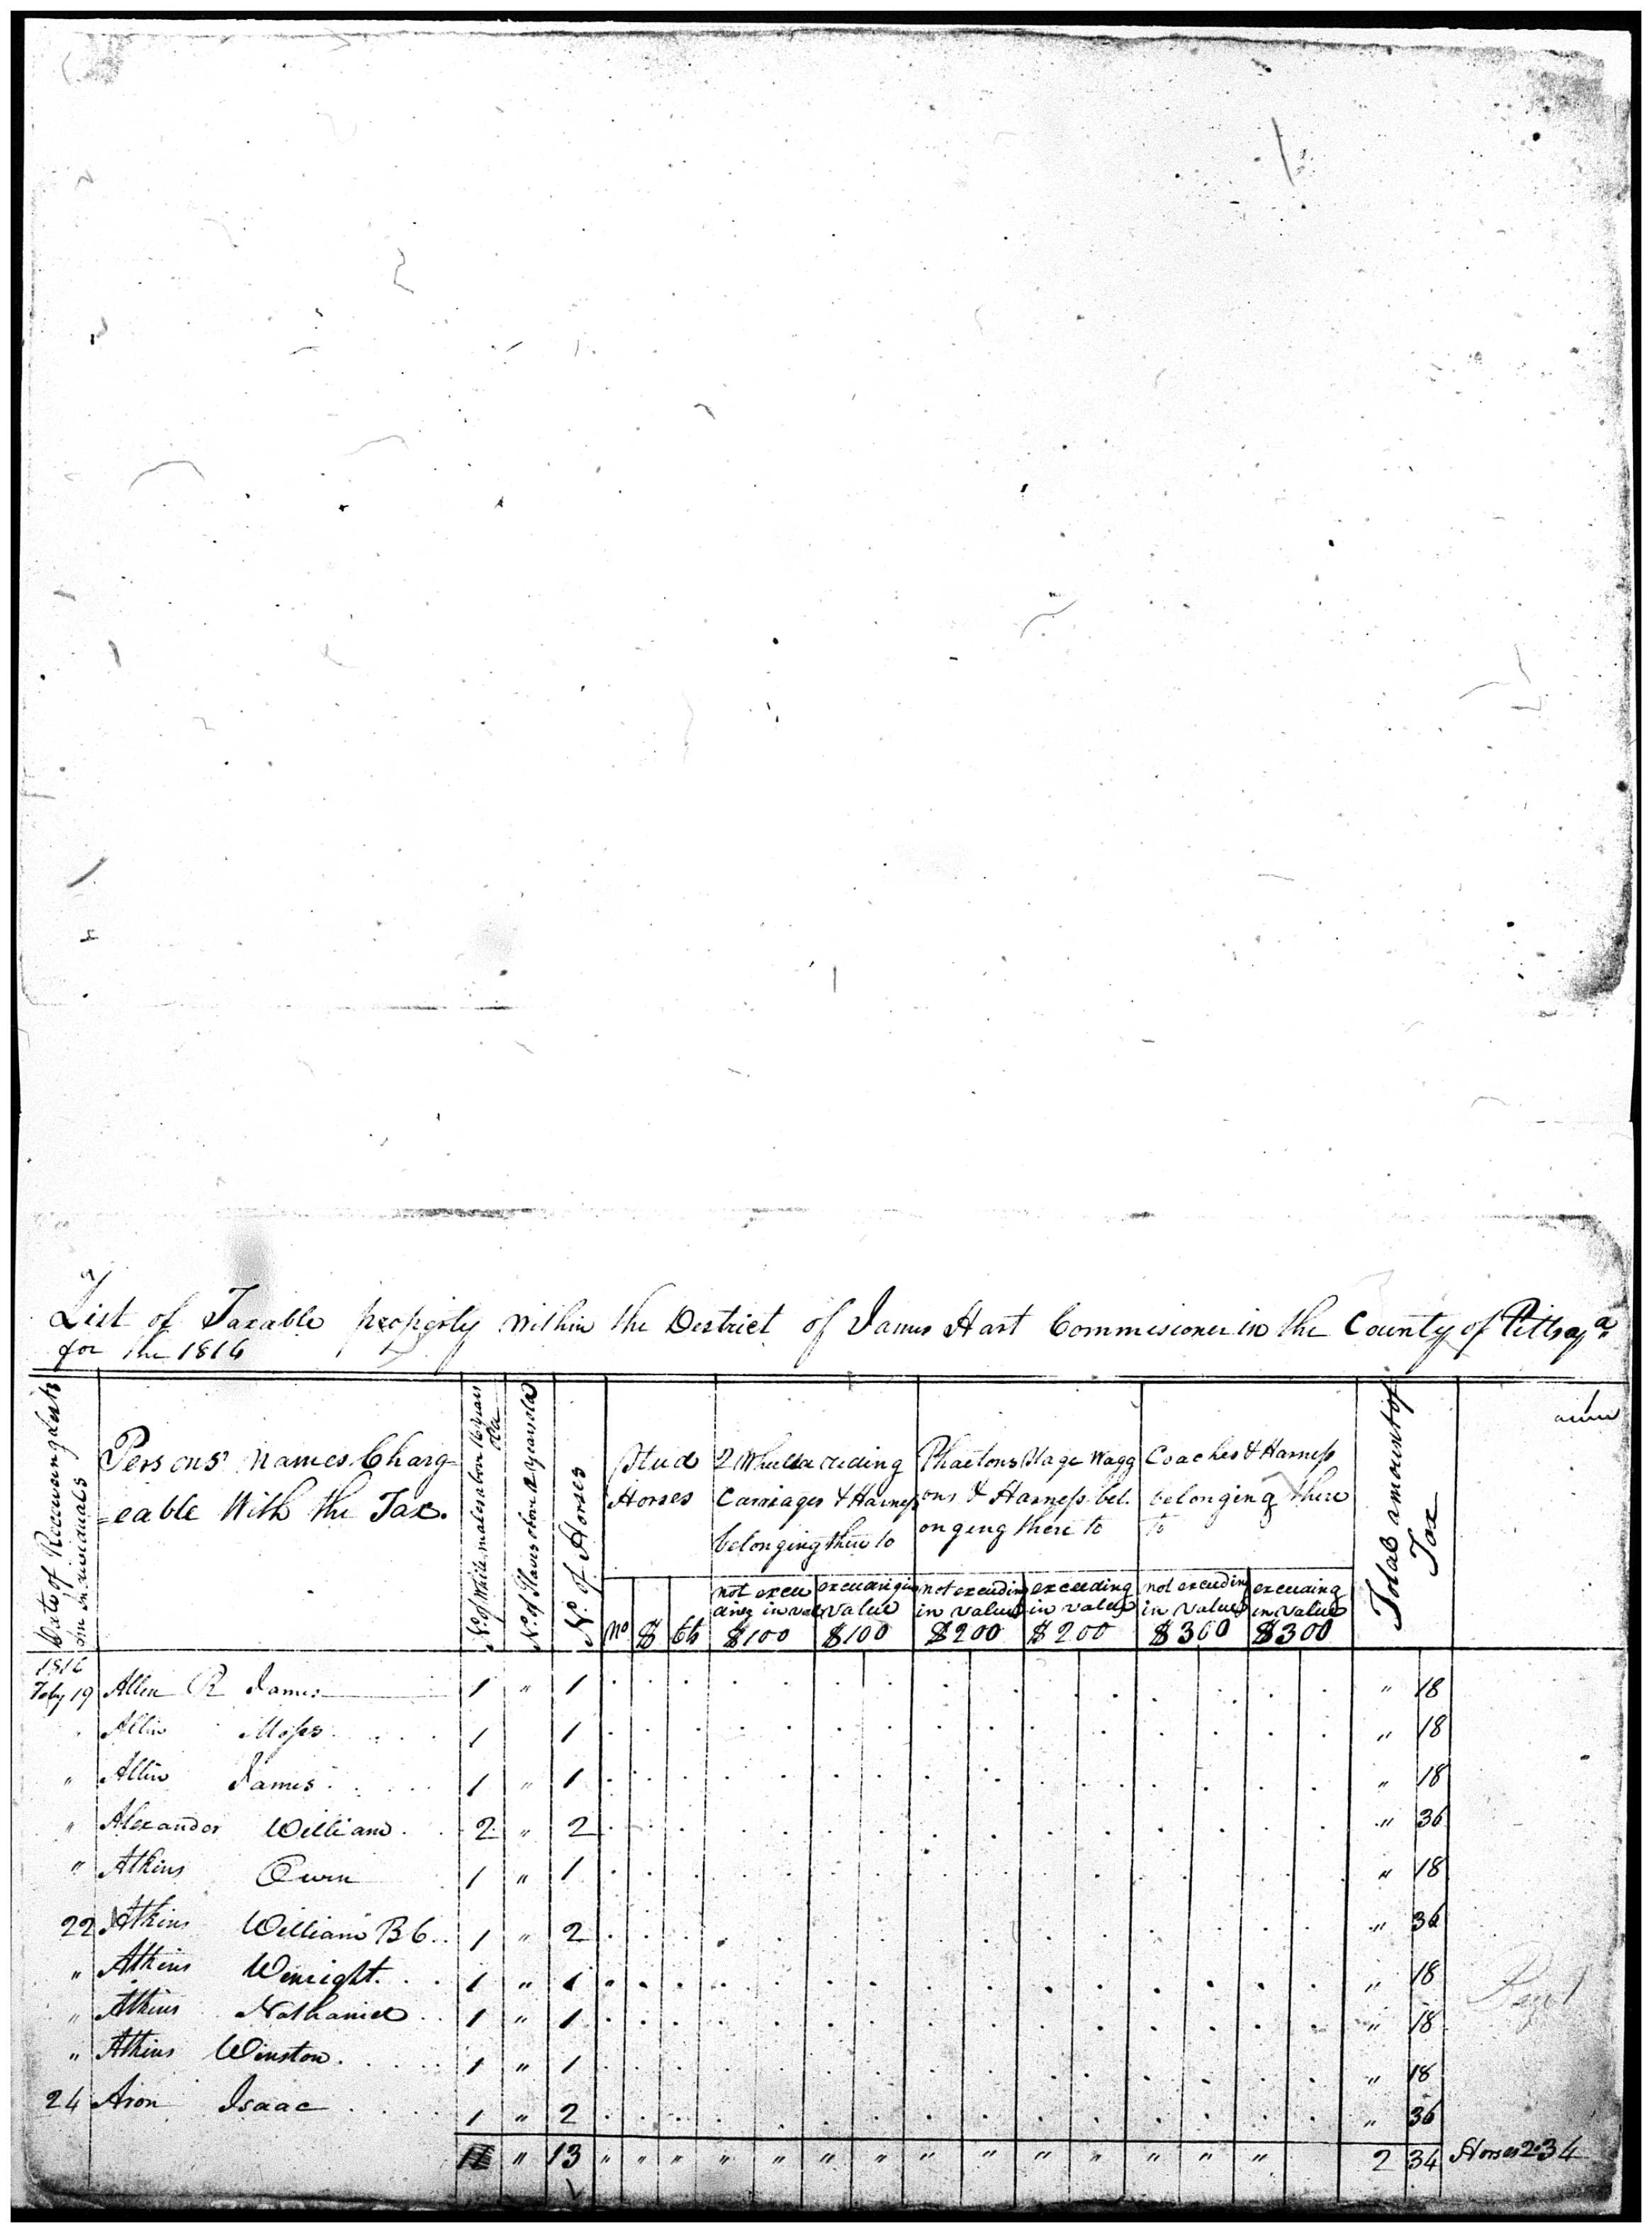 a/
List of Taxable property within the District of James Hart Commisioner in the County of Pittsya
for the 1816
Date of Receiveing Lists
from individuals
Persons' names Charg-
=eable With the Tax.
No. of White males abov 16 years
old
No of Slaves abov 12 years old
No. of Horses
Stud
Horses
No $ Cts
2 Wheel
Carriages & Harness
belonging there to
not excee
ding in val
$100
value
$100
Phaetons Stage Wagg
ons & Harness bel.
onging there to
not exceeding
in value
$200
exceeding
in value
$200
Coaches & Harness
belonging there
to
not exceeding
in value
$300
exceeding
in value
$300
Total amount of
Tax
1816
Feby 19 Allen R James 1 " 1 " 18
Allin Moses 1 1 " 18
" Allin James 1 " 1 " 18
" Alexander William 2 " 2 " 36
" Atkins Owen 1 " 1 " 18
22 Atkins William B C 1 " 2 " 36
" Atkins Winright 1 " 1 " 18
" Atkins Nathaniel 1 " 1 " 18
" Atkins Winston 1 " 1 " 18
24 Aron Isaac 1 " 2 " 36
11 " 13 " " " " " " " " " " " " " " 2 34 Horses 2.34
Page 1